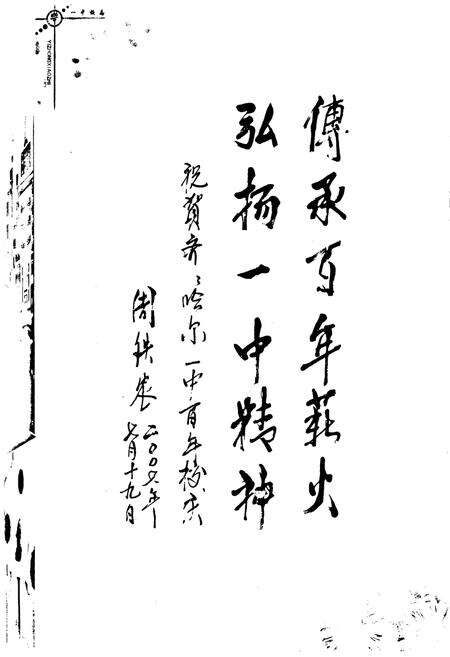 學
一中校志
YIZHONGXIAOZHI
傳承百年薪火
弘扬一中精神
祝賀齐々哈尔一中百年校庆
周铁农
二〇〇六年
七月十九日